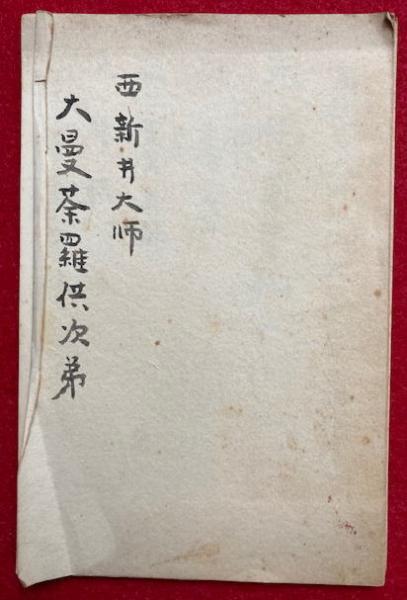 西新井大师
大曼荼羅供次弟